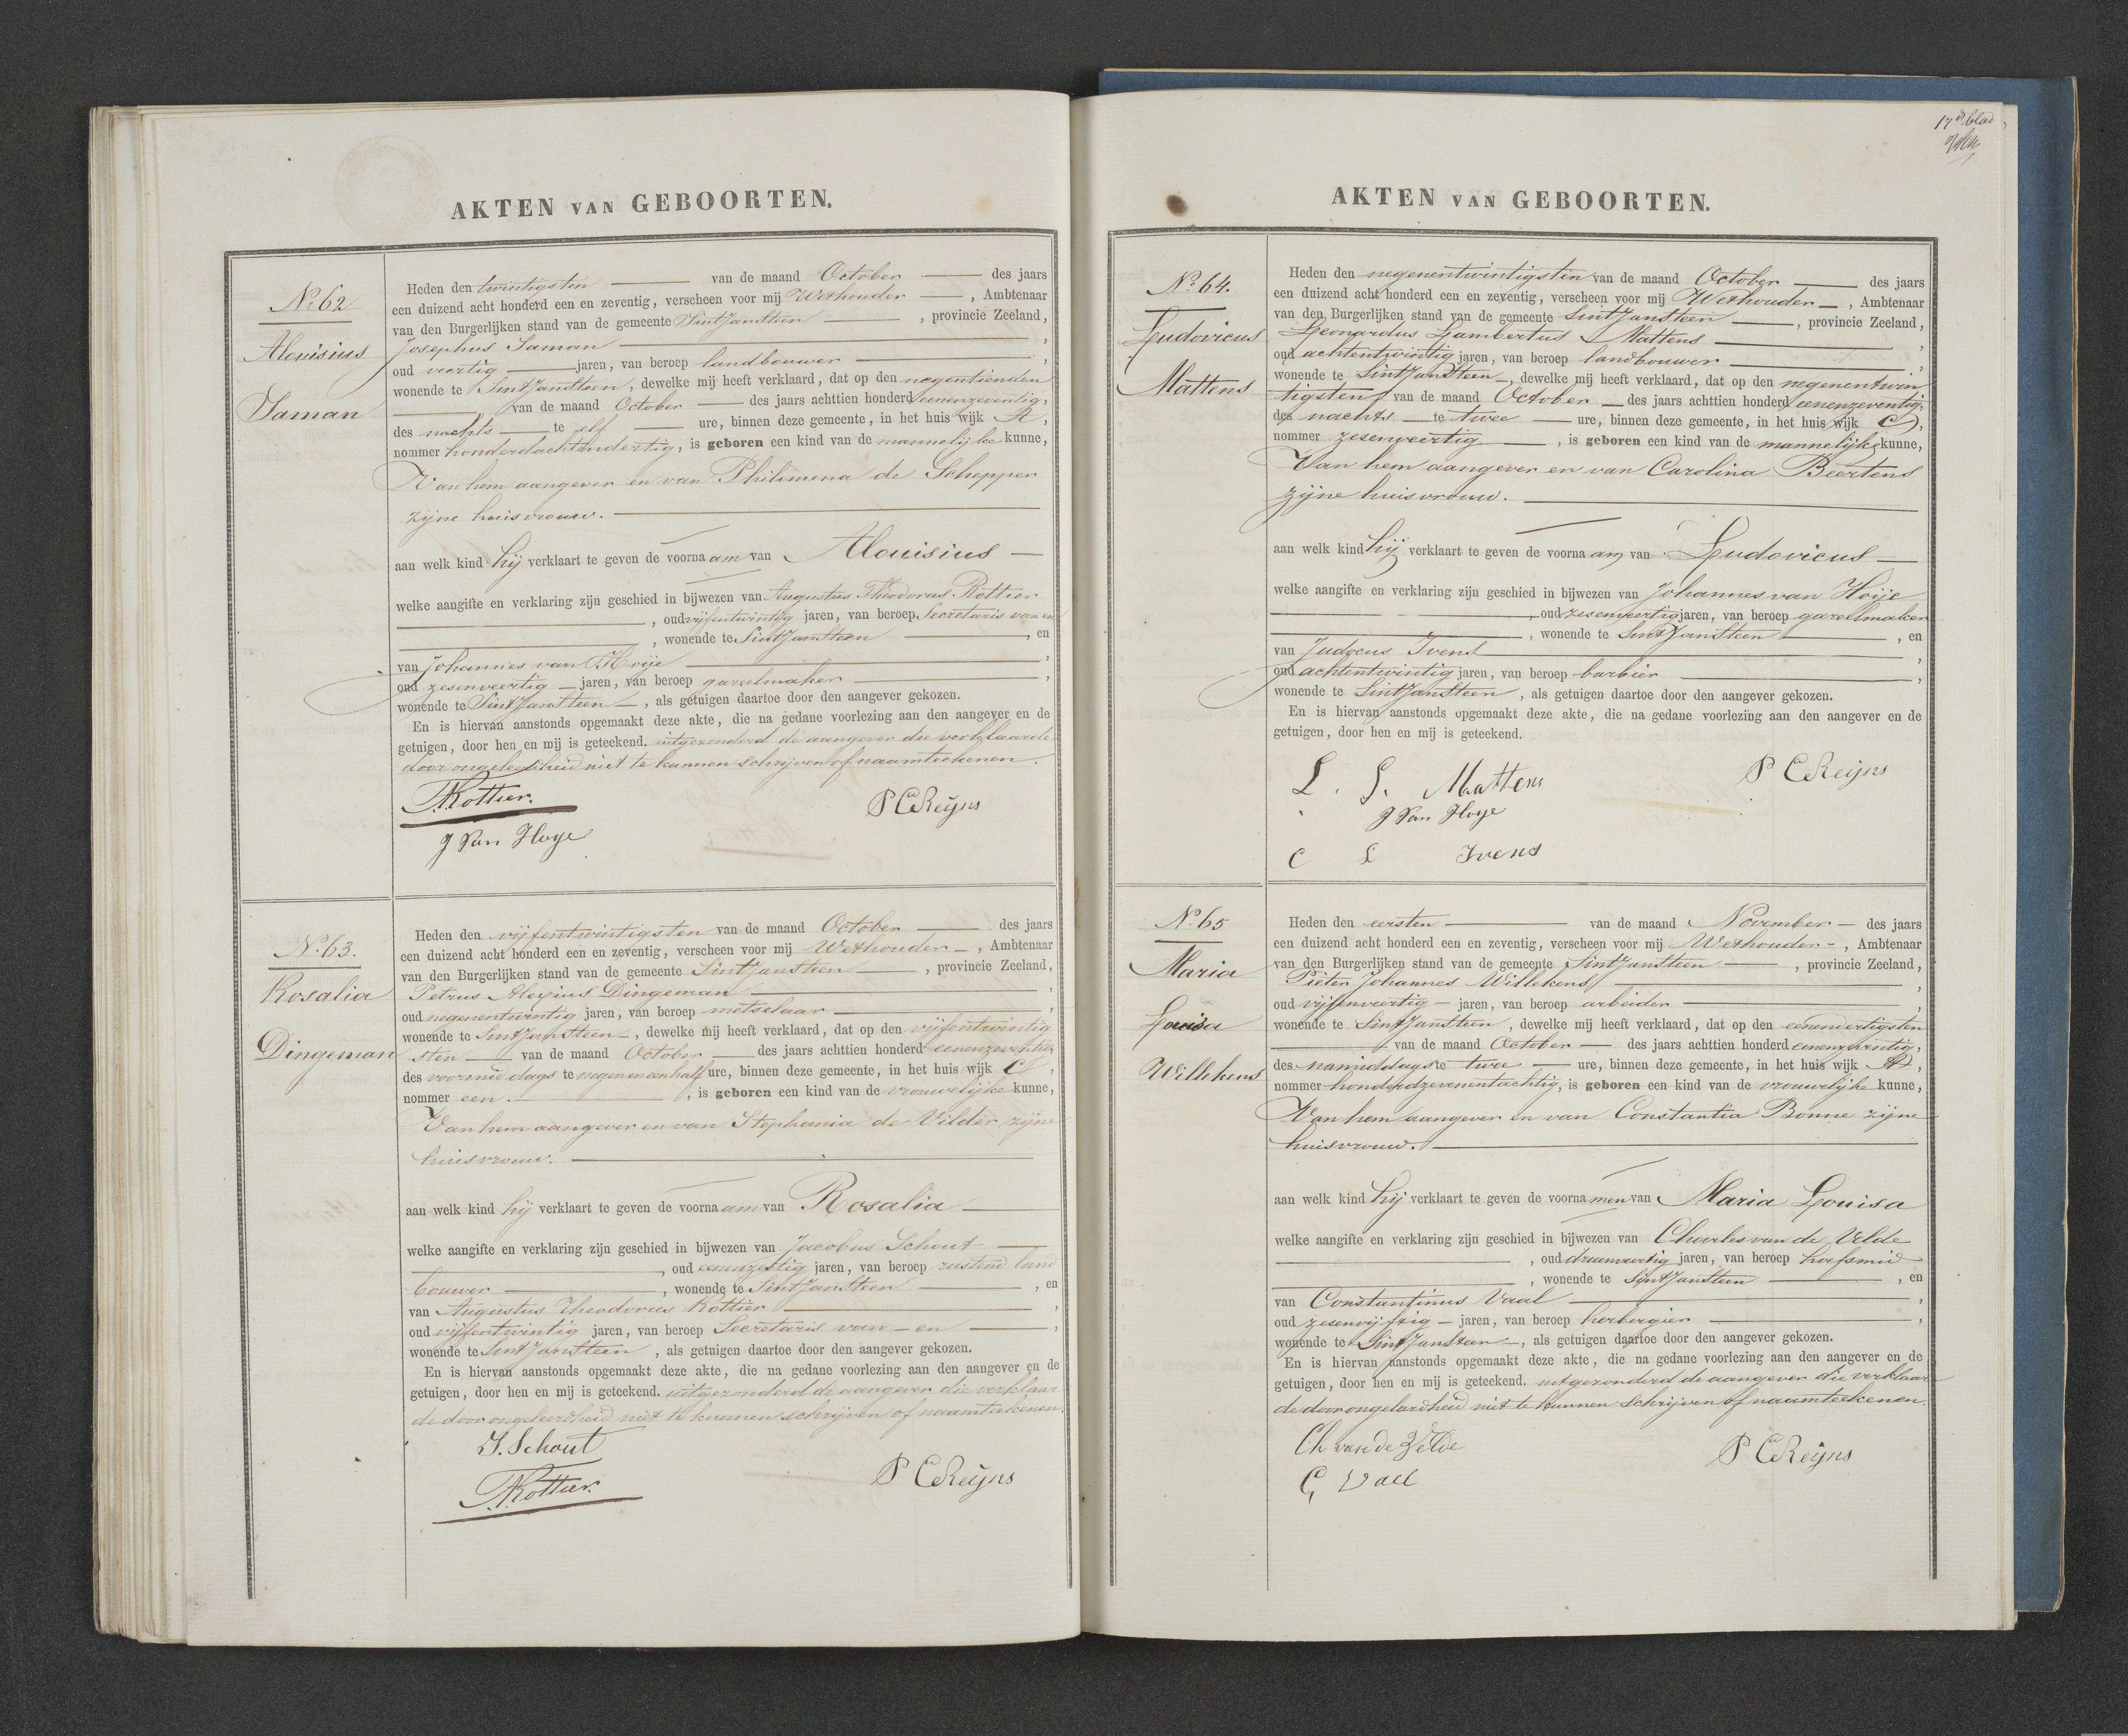 AKTEN VAN GEBOORTEN.
No. 62
Alouisius
Saman
Heden den twintigsten van de maand October des jaars
een duizend acht honderd een en zeventig, verscheen voor mij Wethouder, Ambtenaar
van den Burgerlijken stand van de gemeente Sint Jansteen, provincie Zeeland,
Josephus Saman,
oud veertig jaren, van beroep landbouwer,
wonende te Sint Jansteen, dewelke mij heeft verklaard, dat op den negentienden
van de maand October des jaars achttien honderd eenenzeventig,
des nachts te elf ure, binnen deze gemeente, in het huis wijk A,
nommer honderdachtendertig, is geboren een kind van de mannelijke kunne,
Van hem aangever en van Philimena de Schepper
zijne huisvrouw.
aan welk kind hij verklaart te geven de voornaam van Alouisius
welke aangifte en verklaring zijn geschied in bijwezen van Augustus Theodorus Rottier
, oud vijfentwintig jaren, van beroep Secretaris van en
, wonende te Sint Jansteen, en
van Johannes van Hoije,
oud zesenveertig jaren, van beroep gareelmaker,
wonende te Sint Jansteen, als getuigen daartoe door den aangever gekozen.
En is hiervan aanstonds opgemaakt deze akte, die na gedane voorlezing aan den aangever en de
getuigen, door hen en mij is geteekend. uitgezonderd de aangever die verklaarde
door ongeleerdheid niet te kunnen schrijven of naamteekenen.
Rottier.
P Ce Reijns
J Van Hoye
No. 63.
Rosalia
Dingeman
Heden den vijfentwintigsten van de maand October des jaars
een duizend acht honderd een en zeventig, verscheen voor mij Wethouder, Ambtenaar
van den Burgerlijken stand van de gemeente Sint Jansteen, provincie Zeeland,
Petrus Alexius Dingeman,
oud negenentwintig jaren, van beroep metselaar,
wonende te Sint Jansteen, dewelke mij heeft verklaard, dat op den vijfentwintig
sten van de maand October des jaars achttien honderd eenenzeventig,
des voormiddags te negen en een half ure, binnen deze gemeente, in het huis wijk C,
nommer een, is geboren een kind van de vrouwelijke kunne,
Van hem aangever en van Stephania de Vilder zijne
huisvrouw.
aan welk kind hij verklaart te geven de voornaam van Rosalia
welke aangifte en verklaring zijn geschied in bijwezen van Jacobus Schout
, oud eenenzestig jaren, van beroep rustend land
bouwer, wonende te Sint Jansteen, en
van Augustus Theodorus Rottier,
oud vijfentwintig jaren, van beroep Secretaris van en,
wonende te Sint Jansteen, als getuigen daartoe door den aangever gekozen.
En is hiervan aanstonds opgemaakt deze akte, die na gedane voorlezing aan den aangever en de
getuigen, door hen en mij is geteekend. uitgezonderd de aangever die verklaar
de door ongeleerdheid niet te kunnen schrijven of naamteekenen.
J. Schout
P Ce Reijns
Rottier.
17e blad
AKTEN VAN GEBOORTEN.
No. 64.
Ludovicus
Mattens
Heden den negenentwintigsten van de maand October des jaars
een duizend acht honderd een en zeventig, verscheen voor mij Wethouder, Ambtenaar
van den Burgerlijken stand van de gemeente Sint Jansteen, provincie Zeeland,
Leonardus Lambertus Mattens,
oud achtentwintig jaren, van beroep landbouwer,
wonende te Sint Jansteen, dewelke mij heeft verklaard, dat op den negenentwin
tigsten van de maand October des jaars achttien honderd eenenzeventig,
des nachts te twee ure, binnen deze gemeente, in het huis wijk C,
nommer zesenveertig, is geboren een kind van de mannelijke kunne,
Van hem aangever en van Carolina Beertens
zijne huisvrouw.
aan welk kind hij verklaart te geven de voornaam van Ludovicus
welke aangifte en verklaring zijn geschied in bijwezen van Johannes van Hoije
, oud zesenveertig jaren, van beroep gareelmaker
, wonende te Sint Jansteen, en
van Judocus Ivens,
oud achtentwintig jaren, van beroep barbier,
wonende te Sint Jansteen, als getuigen daartoe door den aangever gekozen.
En is hiervan aanstonds opgemaakt deze akte, die na gedane voorlezing aan den aangever en de
getuigen, door hen en mij is geteekend.
L. L. Mattens
P Ce Reijns
J Van Hoye
C L Ivens
No. 65
Maria
Louisa
Willekens
Heden den eersten van de maand November des jaars
een duizend acht honderd een en zeventig, verscheen voor mij Wethouder, Ambtenaar
van den Burgerlijken stand van de gemeente Sint Jansteen, provincie Zeeland,
Pieter Johannes Willekens,
oud vijfenveertig jaren, van beroep arbeider,
wonende te Sint Jansteen, dewelke mij heeft verklaard, dat op den eenendertigsten
van de maand October des jaars achttien honderd eenenzeventig,
des namiddags te twee ure, binnen deze gemeente, in het huis wijk A,
nommer honderdzevenentachtig, is geboren een kind van de vrouwelijke kunne,
Van hem aangever en van Constantia Bonne zijne
huisvrouw.
aan welk kind hij verklaart te geven de voornamen van Maria Louisa
welke aangifte en verklaring zijn geschied in bijwezen van Charles van de Velde
, oud drieenveertig jaren, van beroep hoefsmid
, wonende te Sint Jansteen, en
van Constantinus Vaal,
oud zesenvijftig jaren, van beroep herbergier,
wonende te Sint Jansteen, als getuigen daartoe door den aangever gekozen.
En is hiervan aanstonds opgemaakt deze akte, die na gedane voorlezing aan den aangever en de
getuigen, door hen en mij is geteekend. uitgezonderd de aangever die verklaar
de door ongeleerdheid niet te kunnen schrijven of naamteekenen.
Ch van de Velde
P Ce Reijns
C, Vael